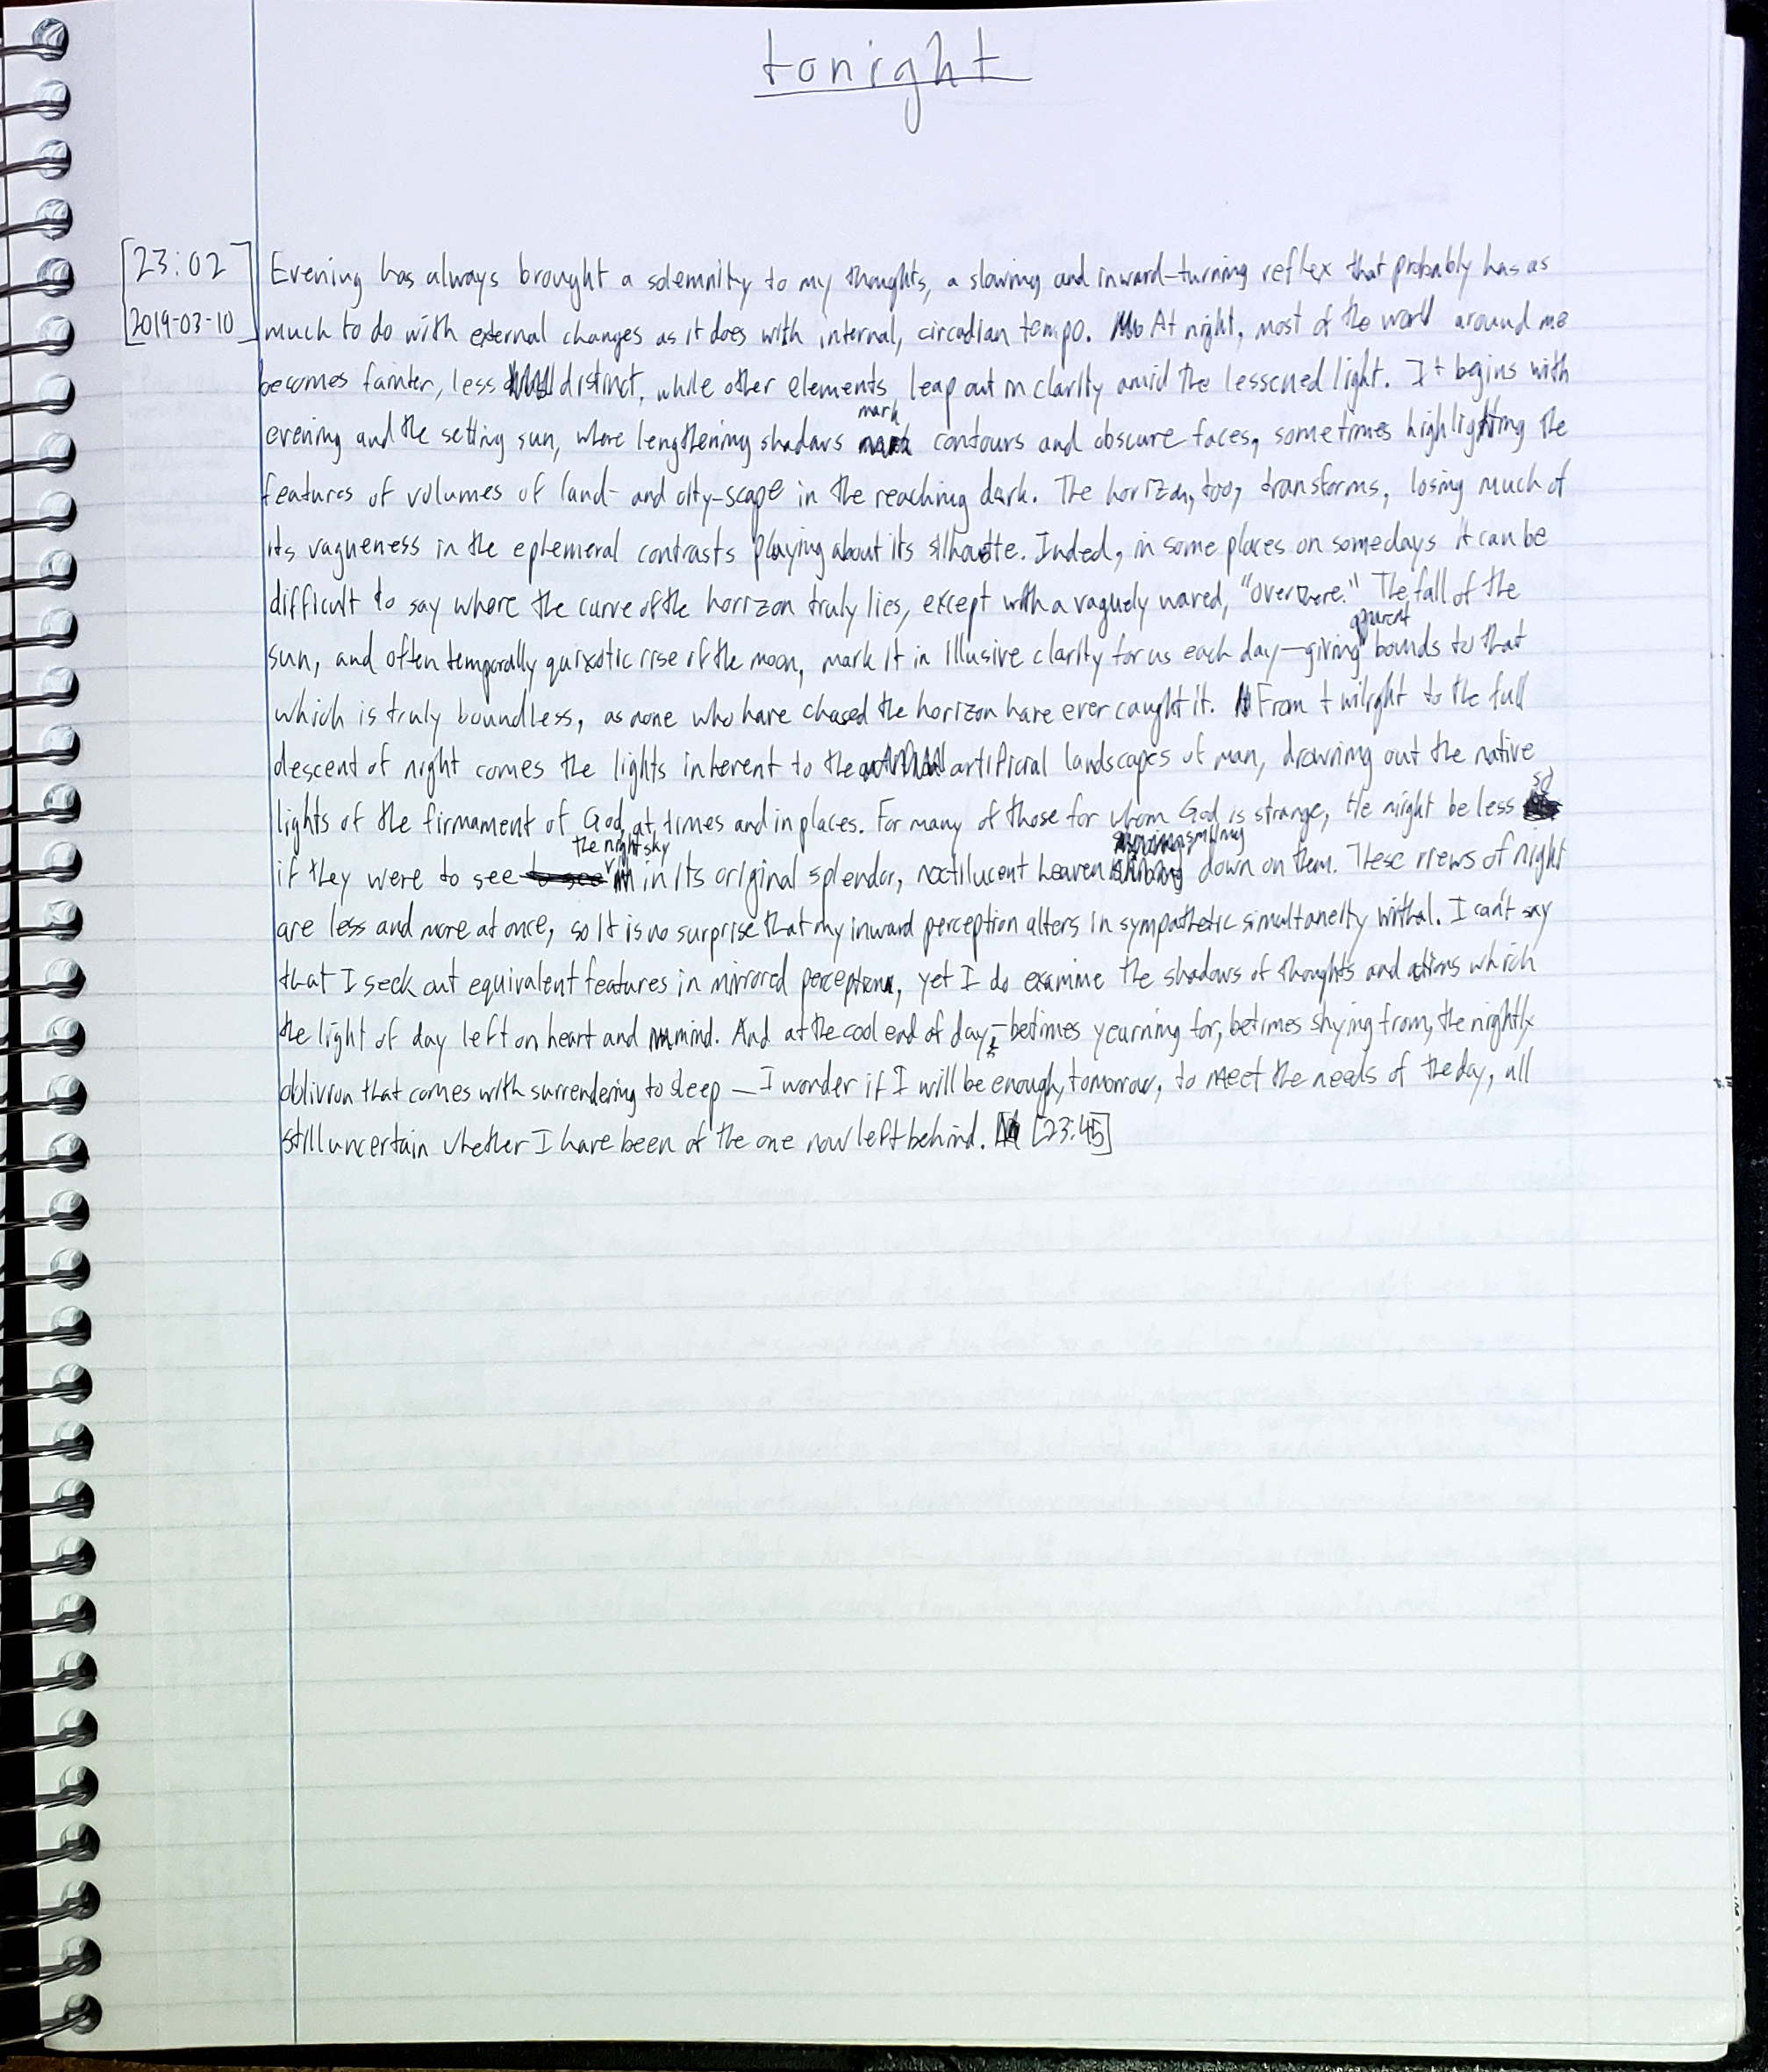 tonight
[23:02
2019-03-10]
Evening has always brought a solemnity to my thoughts, a slowing and inward-turning reflex that probably has as
much to do with external changes as it does with internal, circadian tempo. At night, most of the world around me
becomes fainter, less distinct, while other elements leap out in clarity amid the lessened light. It begins with
mark
evening and the setting sun, where lengthening shadows contours and obscure faces, sometimes highlighting the
features of volumes of land- and city-scape in the reaching dark. The horizon, too, transforms, losing much of
its vagueness in the ephemeral contrasts playing about its silhouette. Indeed, in some places on some days it can be
difficult to say where the curve of the horizon truly lies, except with a vaguely waved, "Over there." The fall of the
apparent
sun, and often temporally quixotic rise of the moon, mark it in illusive clarity for us each day—giving bounds to that
which is truly boundless, as none who have chased the horizon have ever caught it. From twilight to the full
descent of night comes the lights inherent to the artificial landscapes of man, drowning out the native
so
lights of the firmament of God, at times and in places. For many of those for whom God is strange, He might be less
the night sky smiling
if they were to see in its original splendor, noctilucent heaven down on them. These views of night
are less and more at once, so it is no surprise that my inward perception alters in sympathetic simultaneity withal. I can't say
that I seek out equivalent features in mirrored perception, yet I do examine the shadows of thoughts and actions which
the light of day left on heart and mind. And at the cool end of day—betimes yearning for, betimes shying from, the nightly
oblivion that comes with surrendering to sleep—I wonder if I will be enough, tomorrow, to meet the needs of the day, all
still uncertain whether I have been of the one now left behind. [23:45]